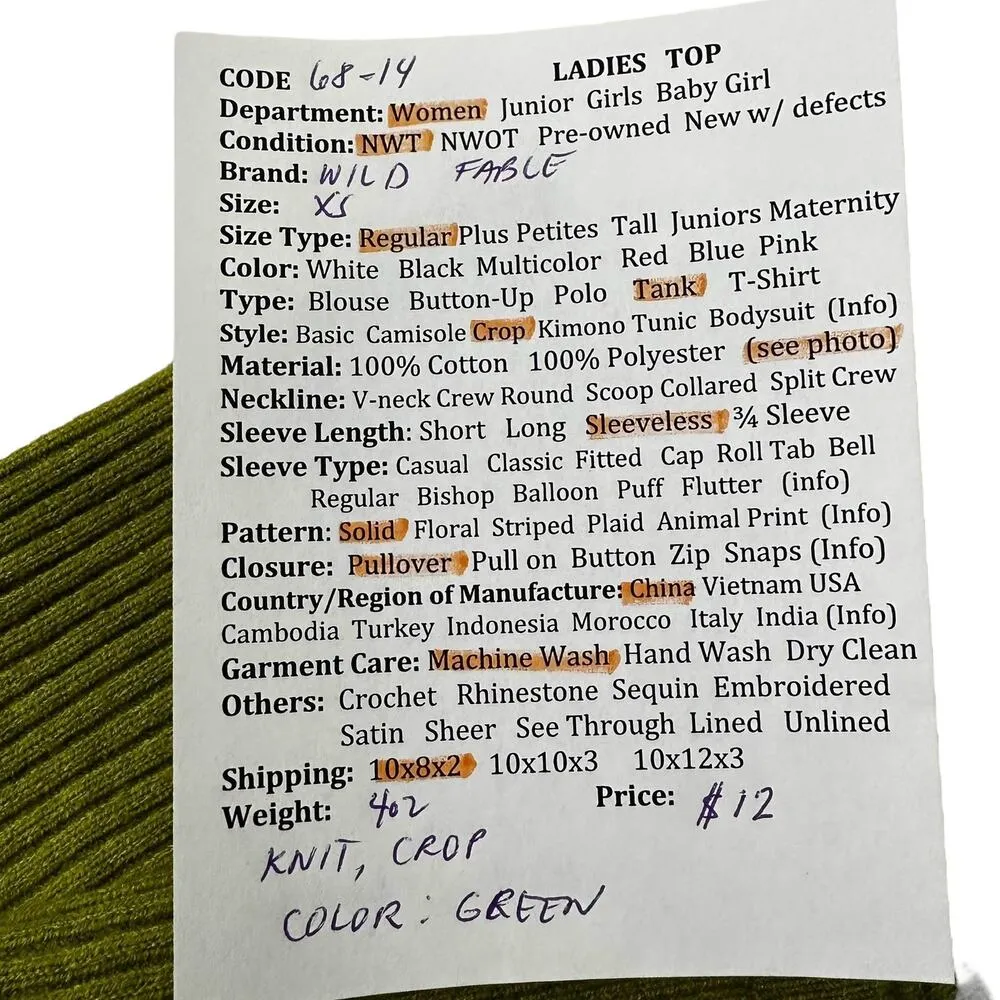 CODE 68-14 LADIES TOP
Department: Women Junior Girls Baby Girl
Condition: NWT NWOT Pre-owned New w/ defects
Brand: WILD FABLE
Size: XS
Size Type: Regular Plus Petites Tall Juniors Maternity
Color: White Black Multicolor Red Blue Pink
Type: Blouse Button-Up Polo Tank T-Shirt
Style: Basic Camisole Crop Kimono Tunic Bodysuit (Info)
Material: 100% Cotton 100% Polyester (see photo)
Neckline: V-neck Crew Round Scoop Collared Split Crew
Sleeve Length: Short Long Sleeveless ¾ Sleeve
Sleeve Type: Casual Classic Fitted Cap Roll Tab Bell
Regular Bishop Balloon Puff Flutter (info)
Pattern: Solid Floral Striped Plaid Animal Print (Info)
Closure: Pullover Pull on Button Zip Snaps (Info)
Country/Region of Manufacture: China Vietnam USA
Cambodia Turkey Indonesia Morocco Italy India (Info)
Garment Care: Machine Wash Hand Wash Dry Clean
Others: Crochet Rhinestone Sequin Embroidered
Satin Sheer See Through Lined Unlined
Shipping: 10x8x2 10x10x3 10x12x3
Weight: 4oz Price: $12
KNIT, CROP
COLOR: GREEN